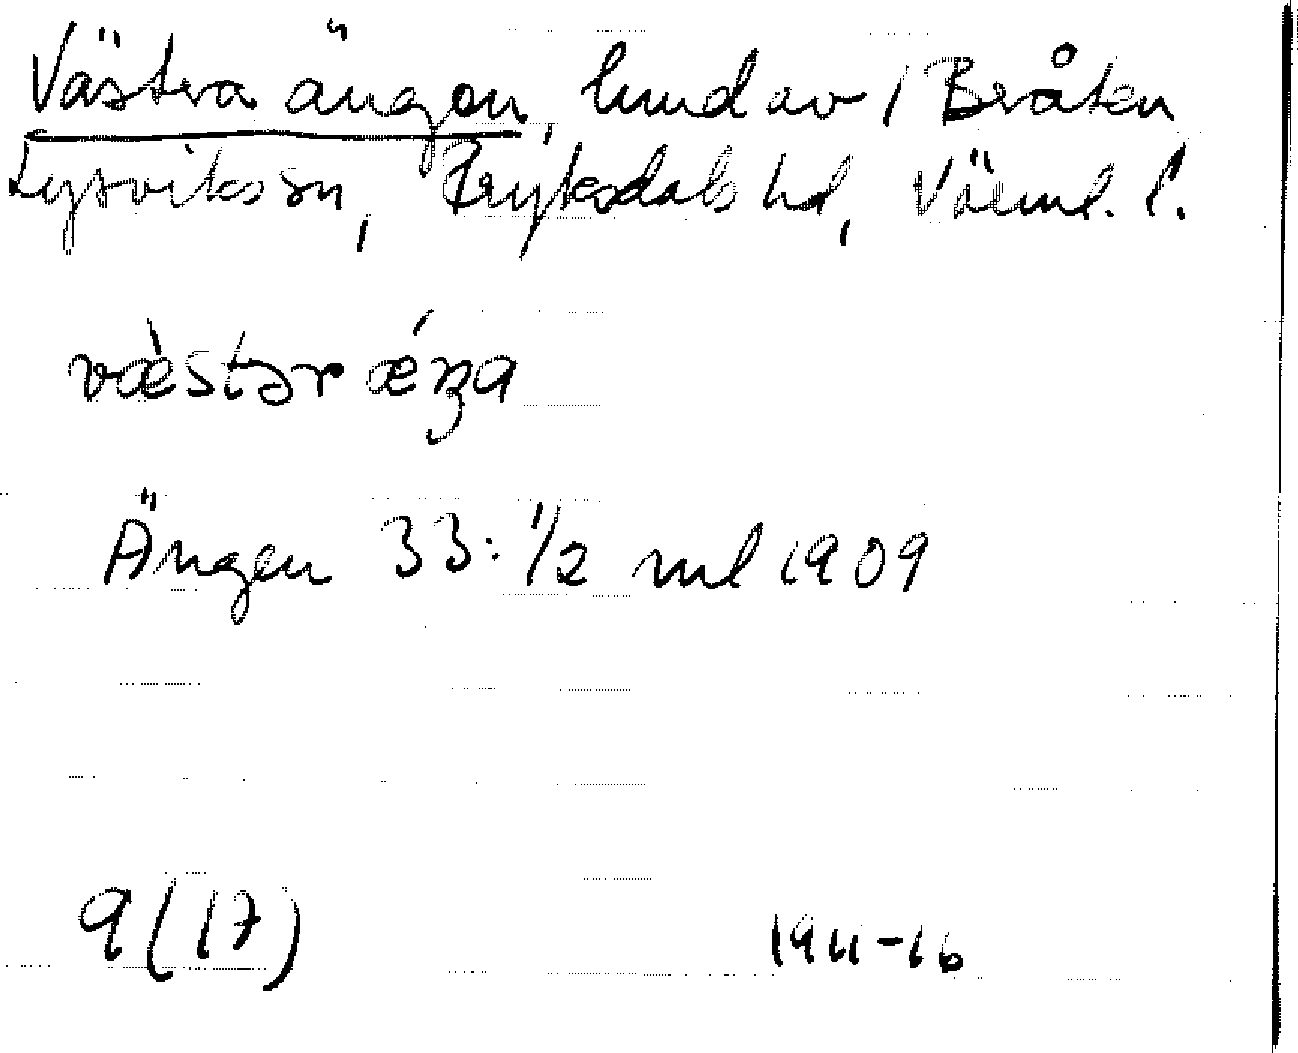 Västra ängen, hmd av 1 Bråten
Lysviks sn, Fryksdals hd, Värml. l.
væ̀stər ǽŋa
Ängen 33:1/2 ml 1909
9(17)
1911-16